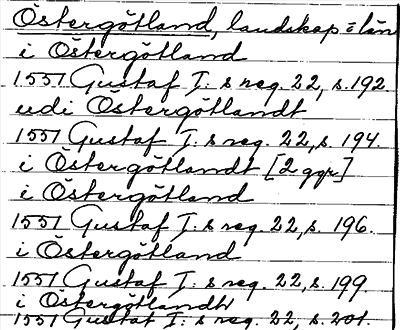 Östergötland, landskap = län
i Östergötland
1551 Gustaf I: s reg. 22, s. 192
udi Östergötlandt
1551 Gustaf I: s reg. 22, s. 194.
i Östergötlandt [2 ggr]
i Östergötland
1551 Gustaf I: s reg. 22, s. 196.
i Östergötland
1551 Gustaf I: s reg. 22, s. 199.
i Östergötlandh
1551 Gustaf I: s reg. 22, s. 201.